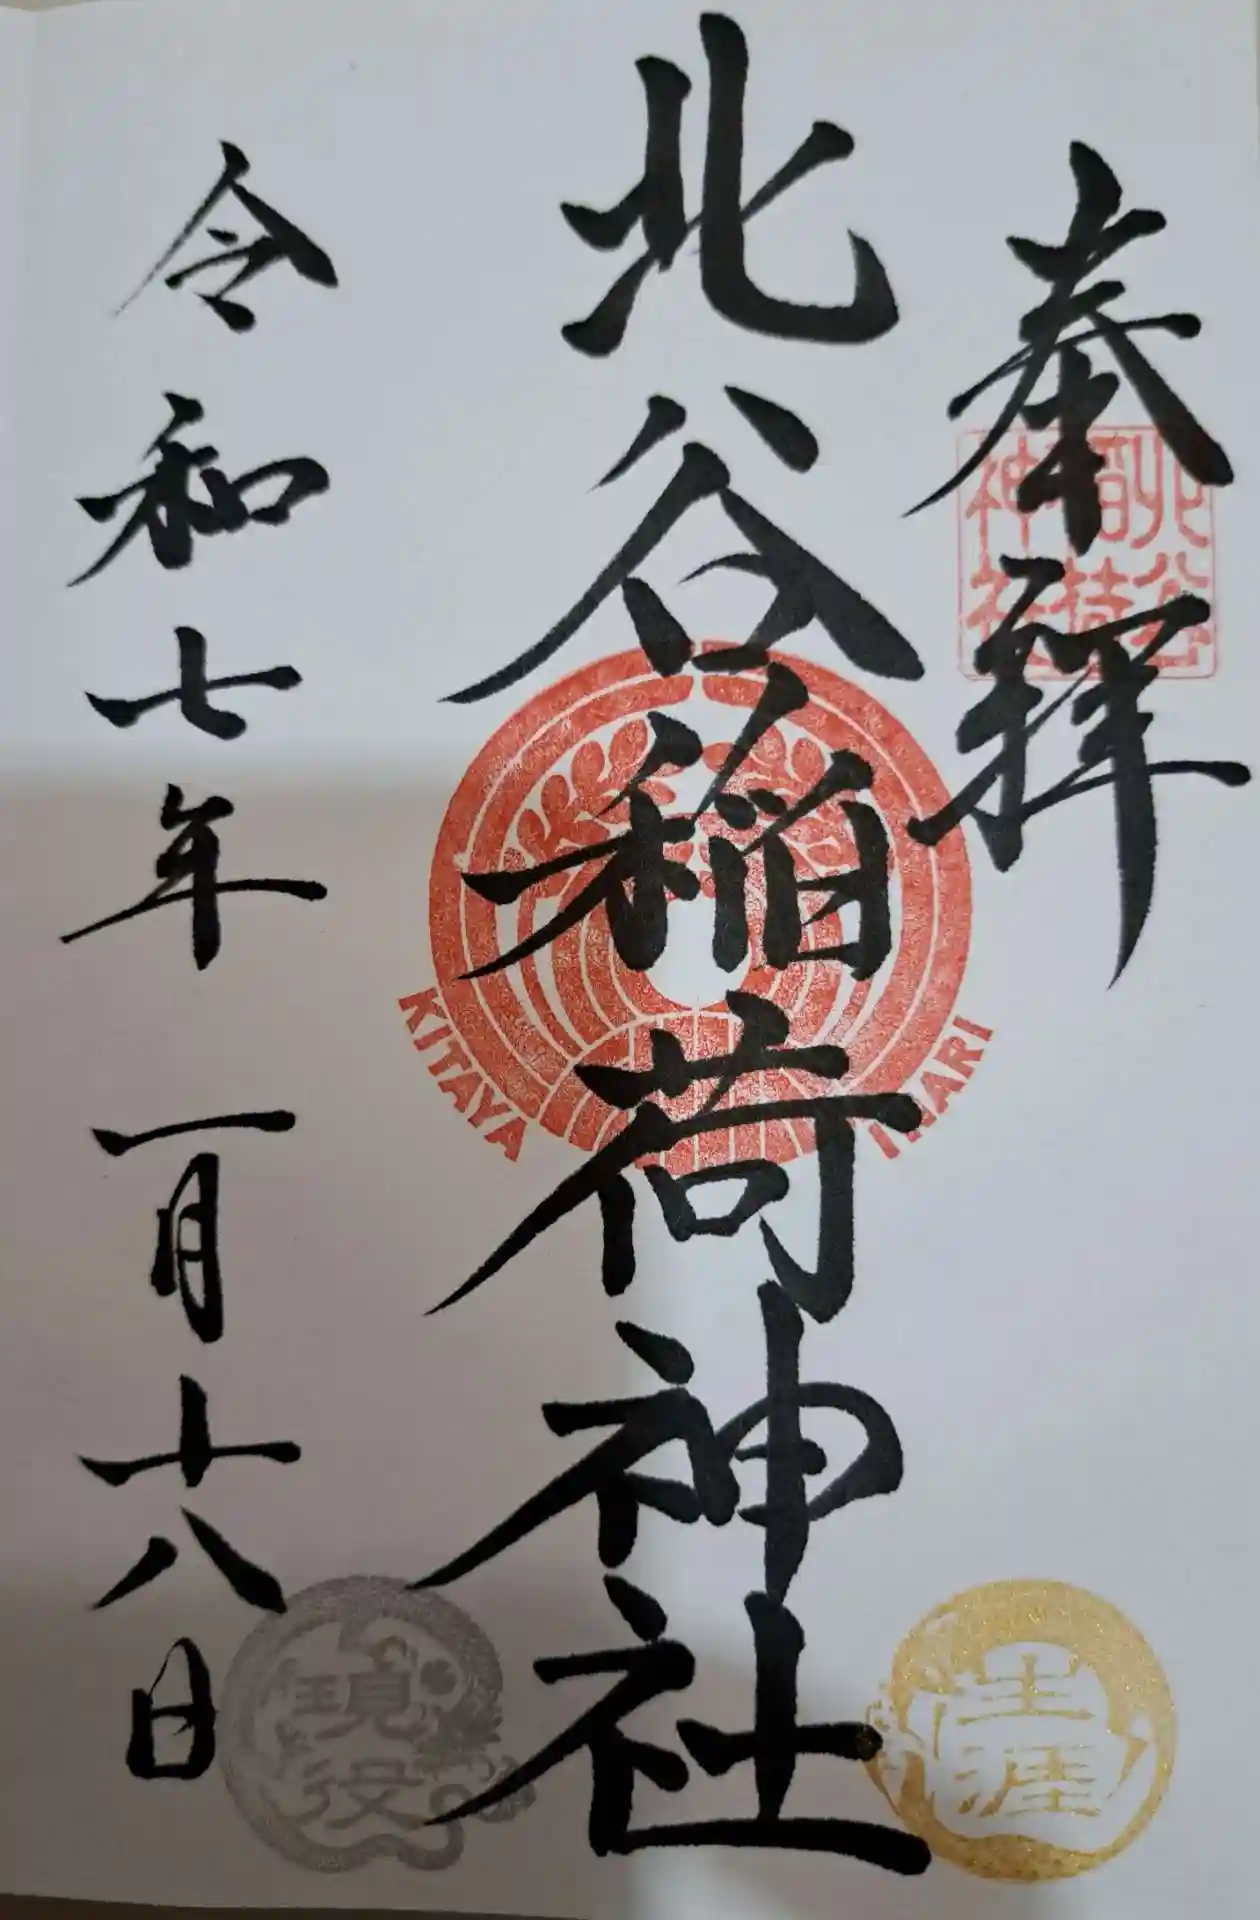 奉拝
北谷稲荷神社
北谷稲荷神社
KITAYA INARI
生涯
現役
令和七年一月十八日